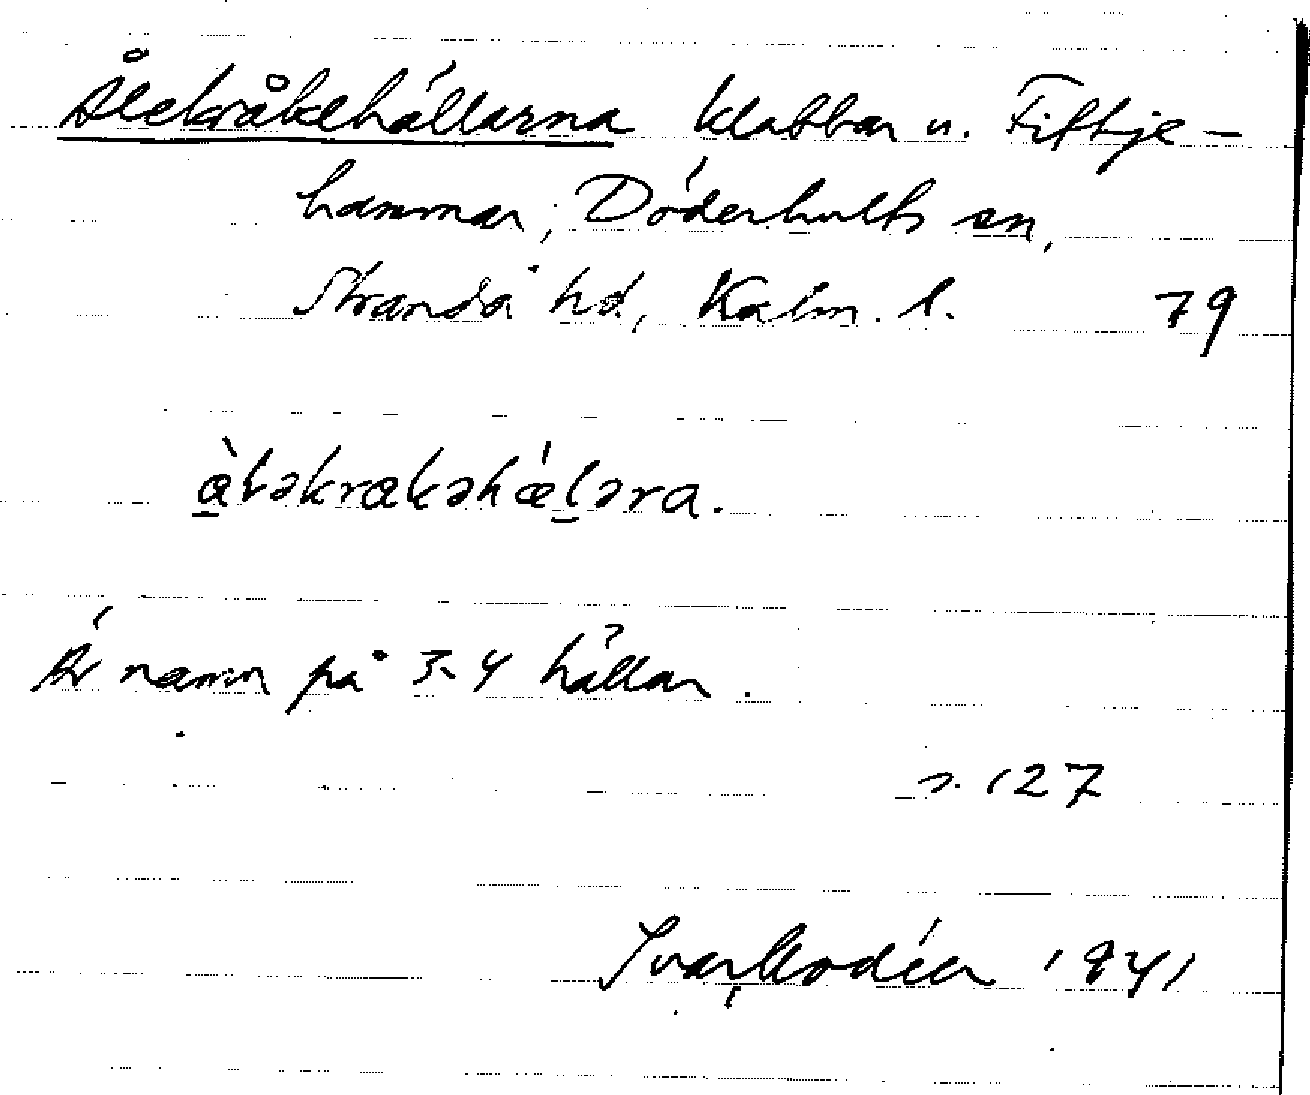 Ålekråkehällarna klabbar n. Fittje-
hammar, Döderhults sn,
Stranda hd, Kalm. l. 79
àləkrakəhǽl̠əra.
Är namn på 3-4 hällar.
s. 127
Ivar Modéer 1941